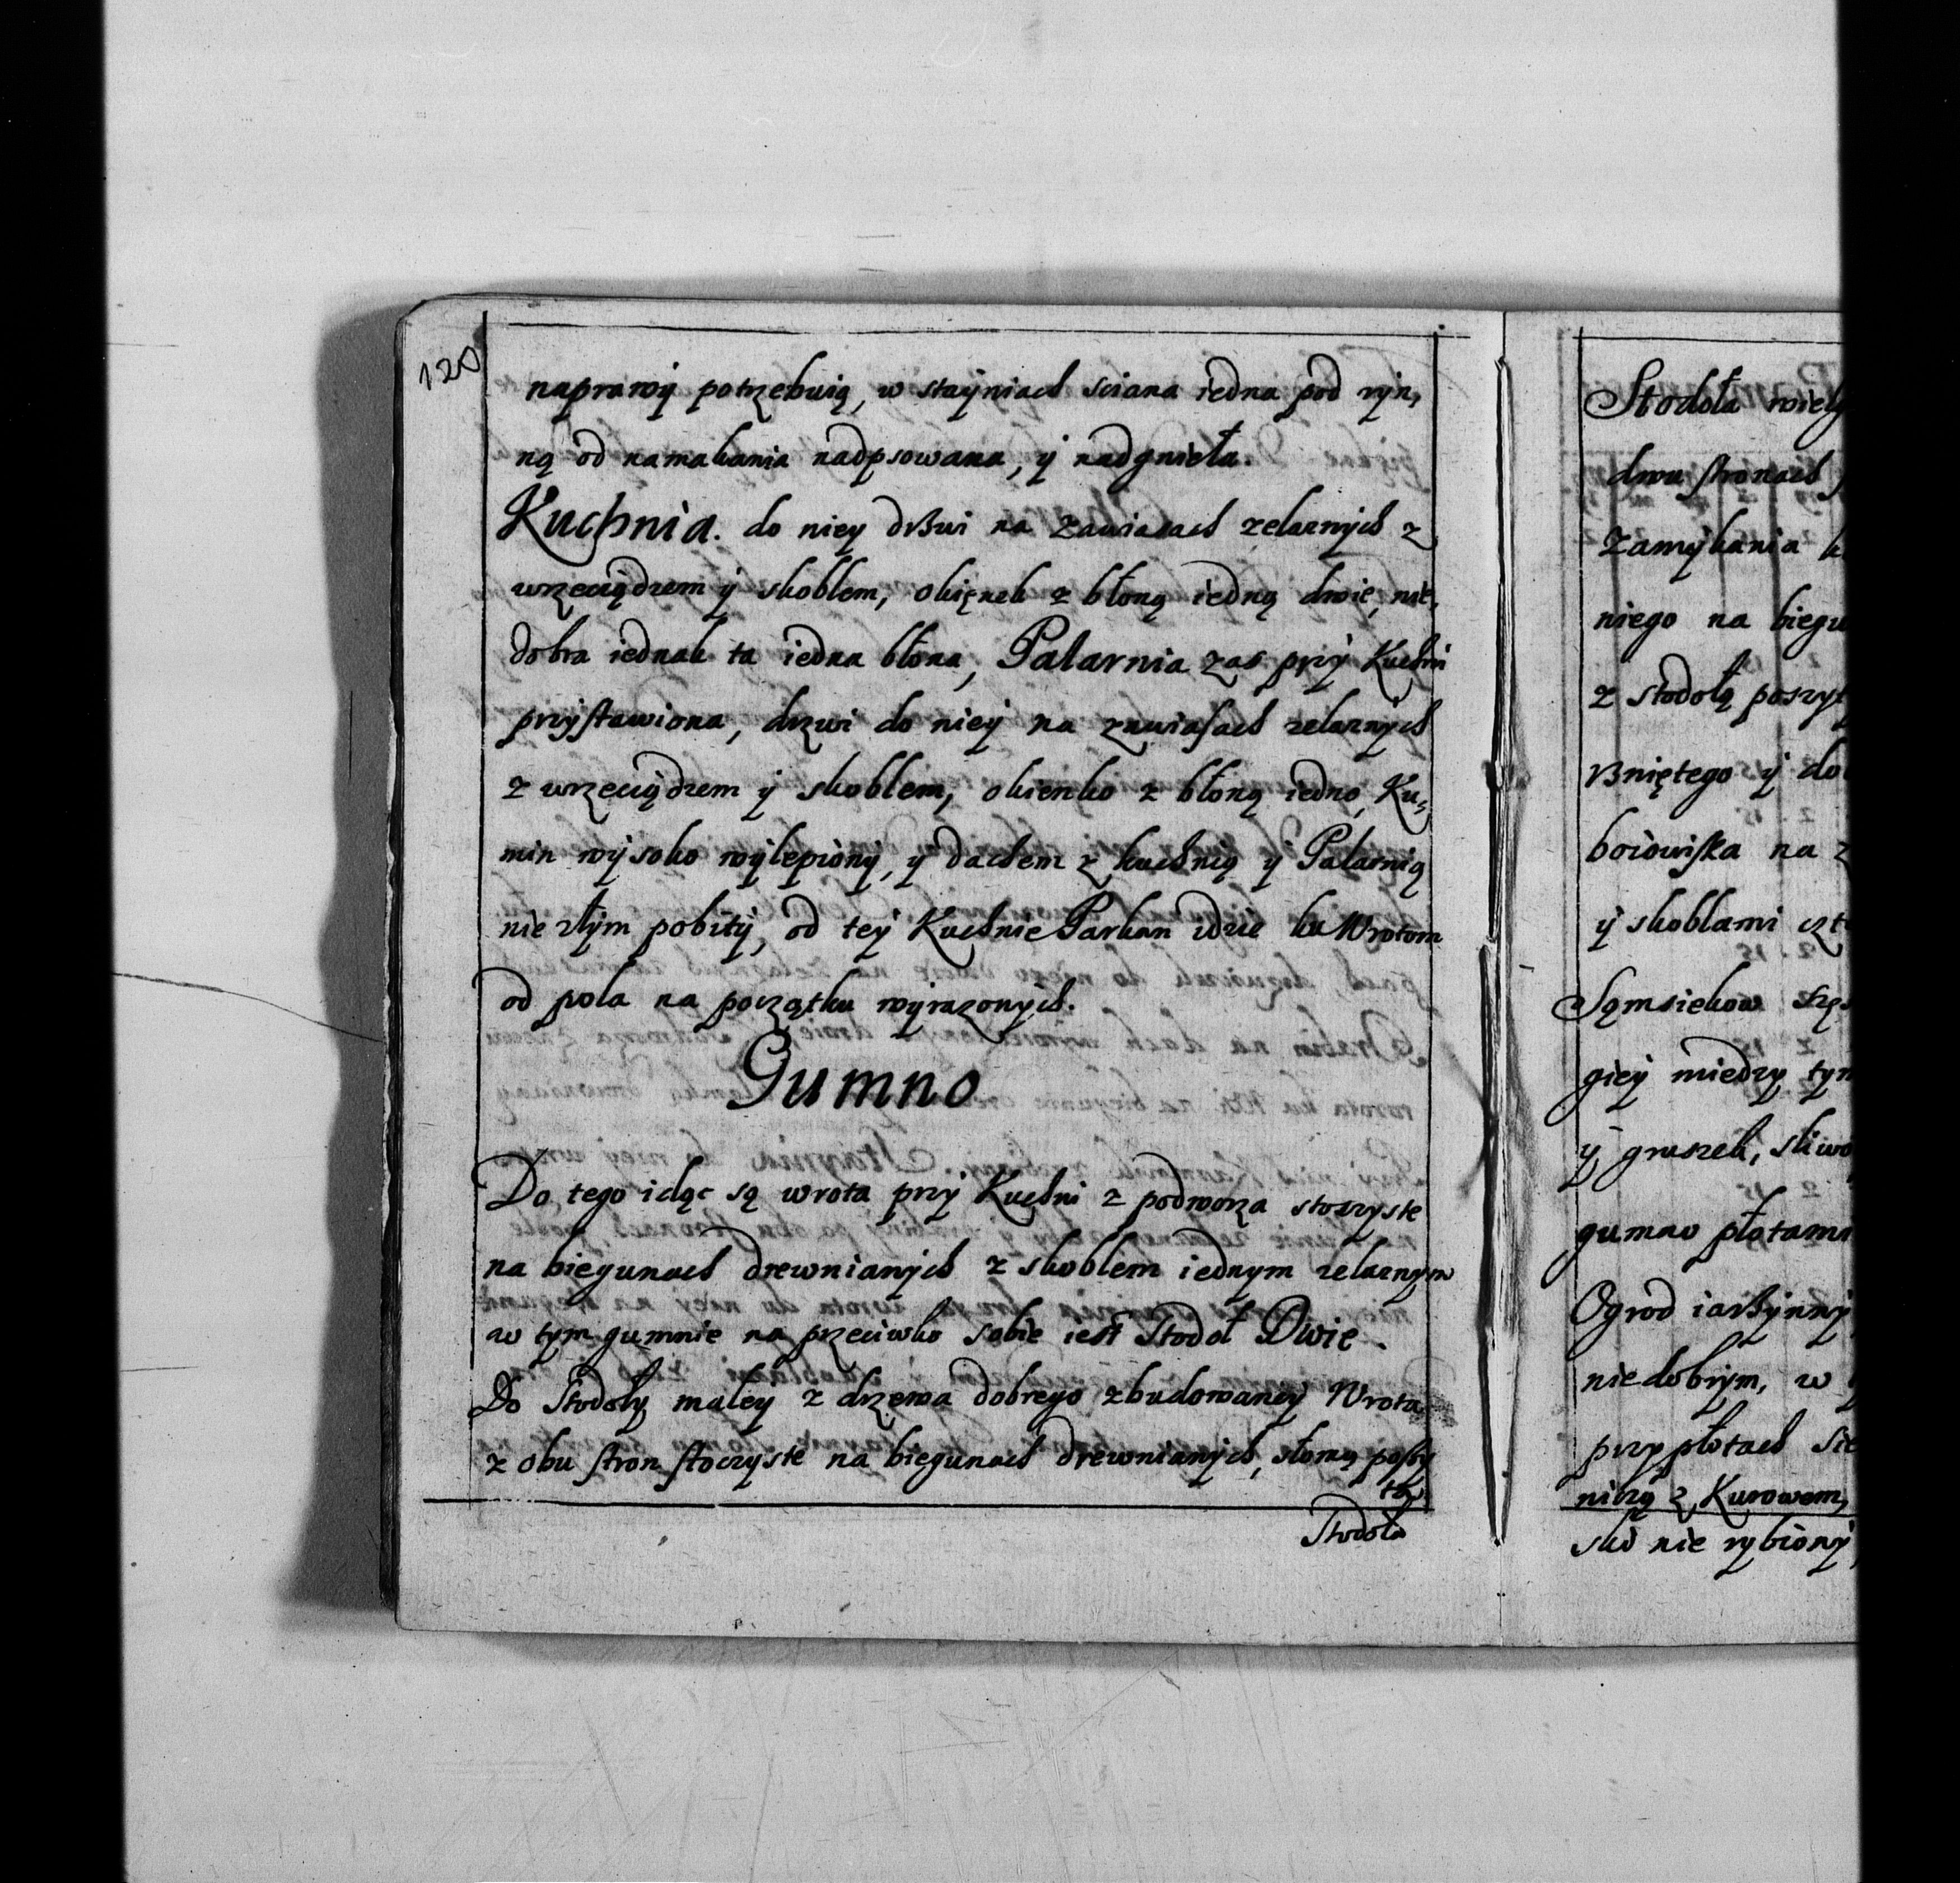 120
naprawÿ potrzebuią, w staÿniach sciana iedna pod rÿn,
ną od namakania nadpsowana, ÿ nadgnieła.
Kuchnia. do niey drzwi na zawiasach zelaznÿch z
wrzeciądzem ÿ skoblem, okięnek z błoną iedną dwie, nie,
dobra iednak ta iedna błona, Palarnia zas przÿ Kuchni
przÿstawiona, drzwi do nieÿ na zawiasach zelaznÿch
z wrzeciądzem ÿ skoblem, okienko z błoną iedno, Ku,
min wÿsoko wÿlepionÿ, ÿ dachem z kuchnią ÿ Palarnią
nie złÿm pobitÿ, od teÿ Kuchnie Parkan idzie ku Wrotom
od pola na początku wÿrazonÿch.
Gumno
Do tego idąc są wrota przÿ Kuchni z podworza stoczyste
na biegunach drewnianÿch z skoblem iednym zelaznym
w tym gumnie na przeciwko sobie iest Stodoł Dwie.
Do Stodoły małey z drzewa dobrego zbudowaneÿ Wrota
z obu stron stoczyste na biegunach drewnianÿch, słomą poszy
ta
Stodoła
Stodoła
dwu stronach
Zamÿkania
niego na
z stodołą
ÿ do
boiowiska na
ÿ skoblami
Sąmsiekow
gieÿ miedzy
ÿ gruszek,
gumno płotami
Ogrod iarzÿnnÿ
niedobrÿm, w
przy płotach
nicą z Kurowem,
ski nie rybionÿ